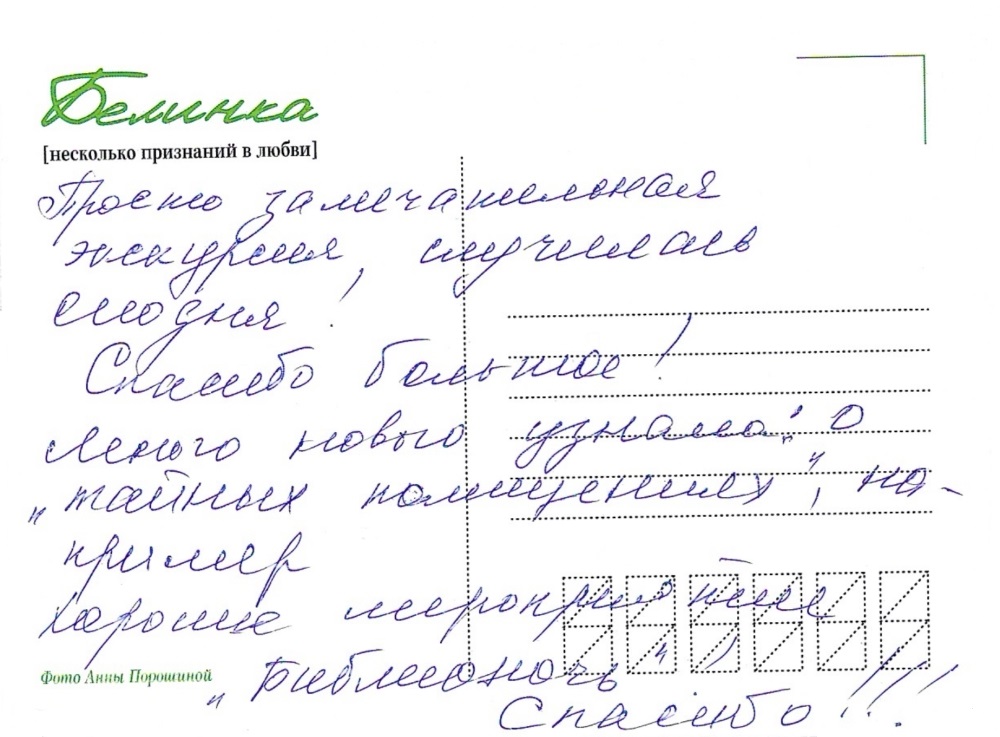 Белинка
[несколько признаний в любви]
Просто замечательная
экскурсия, случилась
сегодня!
Спасибо большое!
Много нового узнала: о
„тайных помещениях", на-
пример
Хорошее мероприятие
„Библионочь"
Спасибо!!!
Фото Анны Порошиной